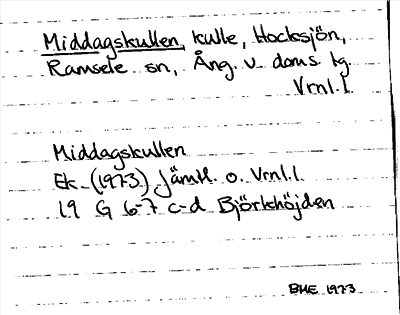 Middagskullen, kulle, Hocksjön,
Ramsele sn, Ång. v. doms. tg.
Vrnl. l.
Middagskullen
Ek. (1973) Jämtl. o. Vrnl. l.
19 G 6-7 c-d Björkhöjden
BHE 1973